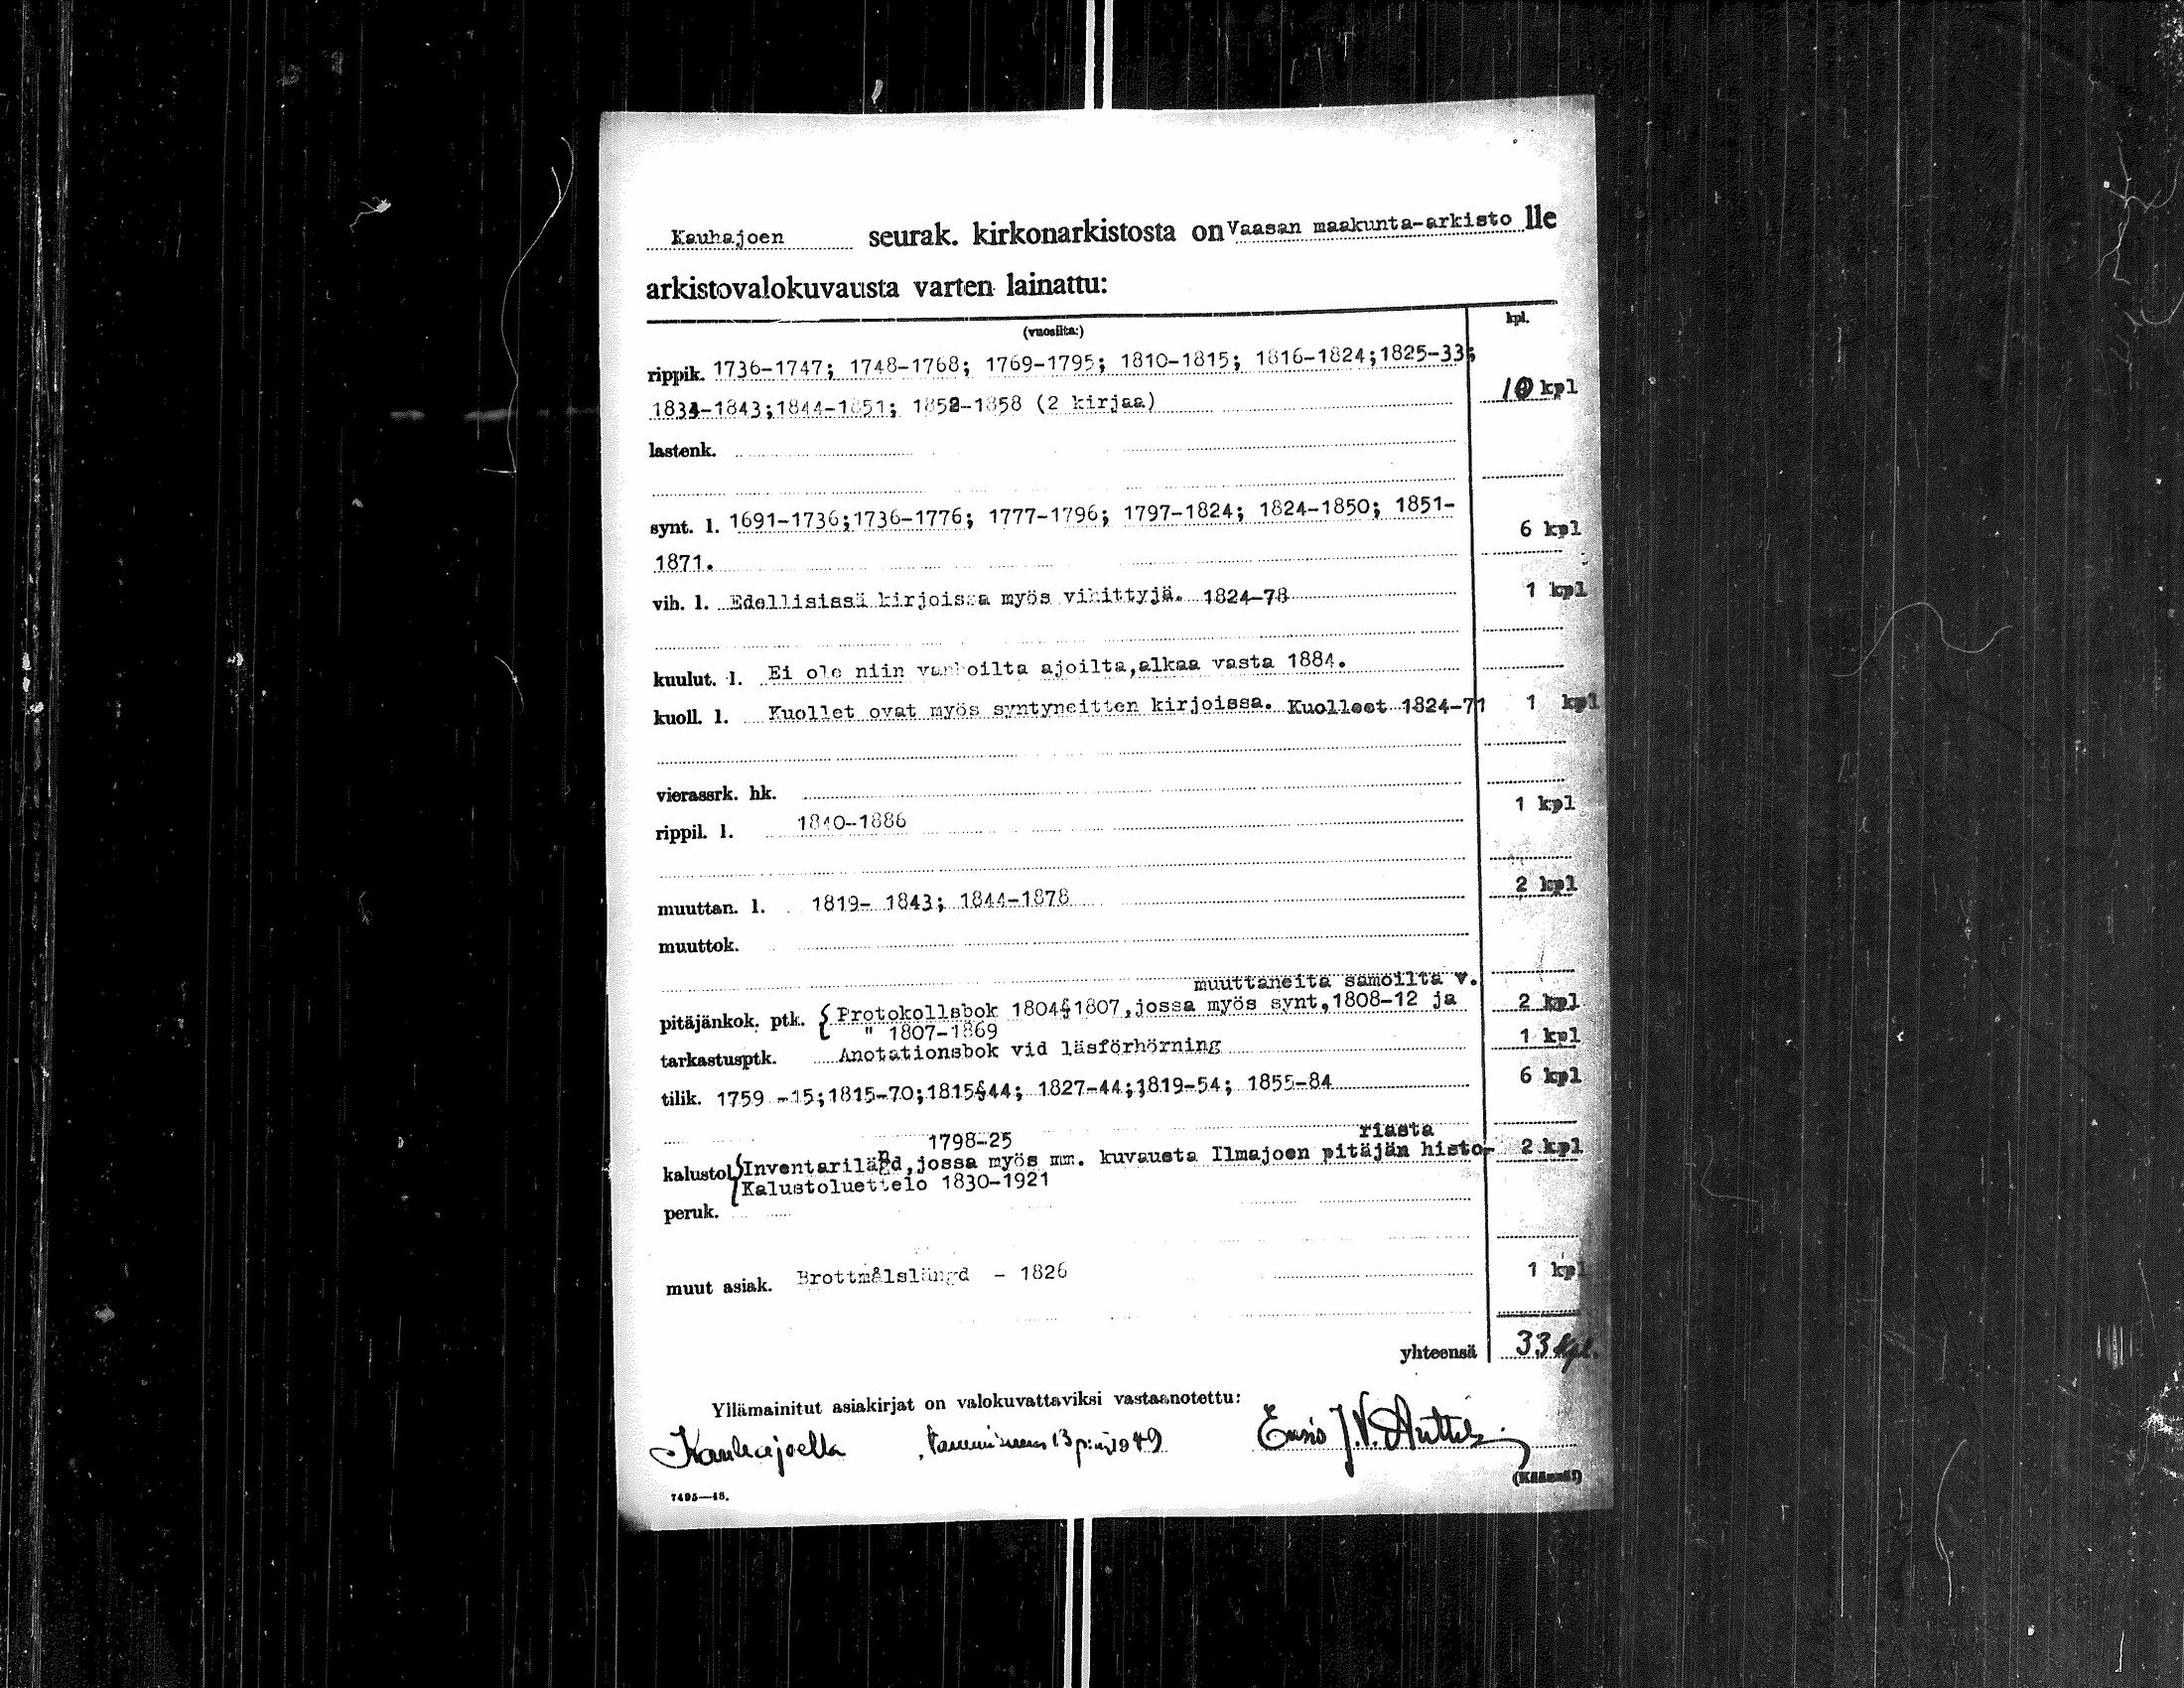 Kauhajoen seurak. kirkonarkistosta on Vaasan maakunta-arkisto lle
arkistovalokuvausta varten lainattu:
(vuosilta:) kpl.
rippik. 1736-1747; 1748-1768; 1769-1795; 1810-1815; 1816-1824;1825-33;
1834-1843;1844-1851; 1852-1858 (2 kirjaa) 10 kpl
lastenk.
synt. l. 1691-1736;1736-1776; 1777-1796; 1797-1824; 1824-1850; 1851- 6 kpl
1871.
vih. l. Edellisissä kirjoissa myös vihittyjä. 1824-78 1 kpl
kuulut. l. Ei ole niin vanhoilta ajoilta,alkaa vasta 1884.
kuoll. l. Kuollet ovat myös syntyneitten kirjoissa. Kuolleet 1824-71 1 kpl
vierassrk. hk.
rippil. l. 1840--1886 1 kpl
muuttan. l. 1819- 1843; 1844-1878 2 kpl
muuttok.
muuttaneita samoilta v.
pitäjänkok. ptk. { Protokollsbok 1804§1807,jossa myös synt,1808-12 ja 2 kpl
" 1807-1869
tarkastusptk. Anotationsbok vid läsförhörning 1 kpl
tilik. 1759 -15;1815-70;1815§44; 1827-44;1819-54; 1855-84 6 kpl
1798-25 riasta
kalustol. { Inventarilängd,jossa myös mm. kuvausta Ilmajoen pitäjän histo- 2 kpl
Kalustoluettelo 1830-1921
peruk.
muut asiak. Brottmålslängd - 1826 1 kpl
yhteensä 33 kpl.
Yllämainitut asiakirjat on valokuvattaviksi vastaanotettu:
Kauhajoella , tammikuun 13 p:nä 1949 Ensio J.V.
7495—48.